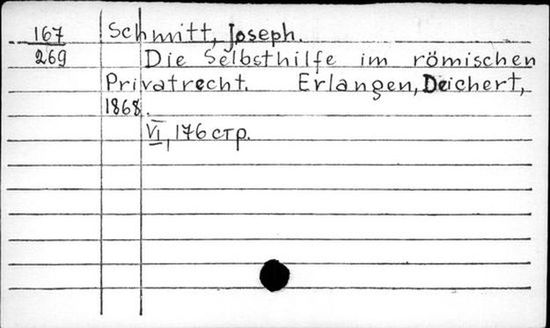 167 Schmitt, Joseph.
269 Die Selbsthilfe im römischen
Privatrecht. Erlangen, Deichert,
1868.
VI, 176 стр.